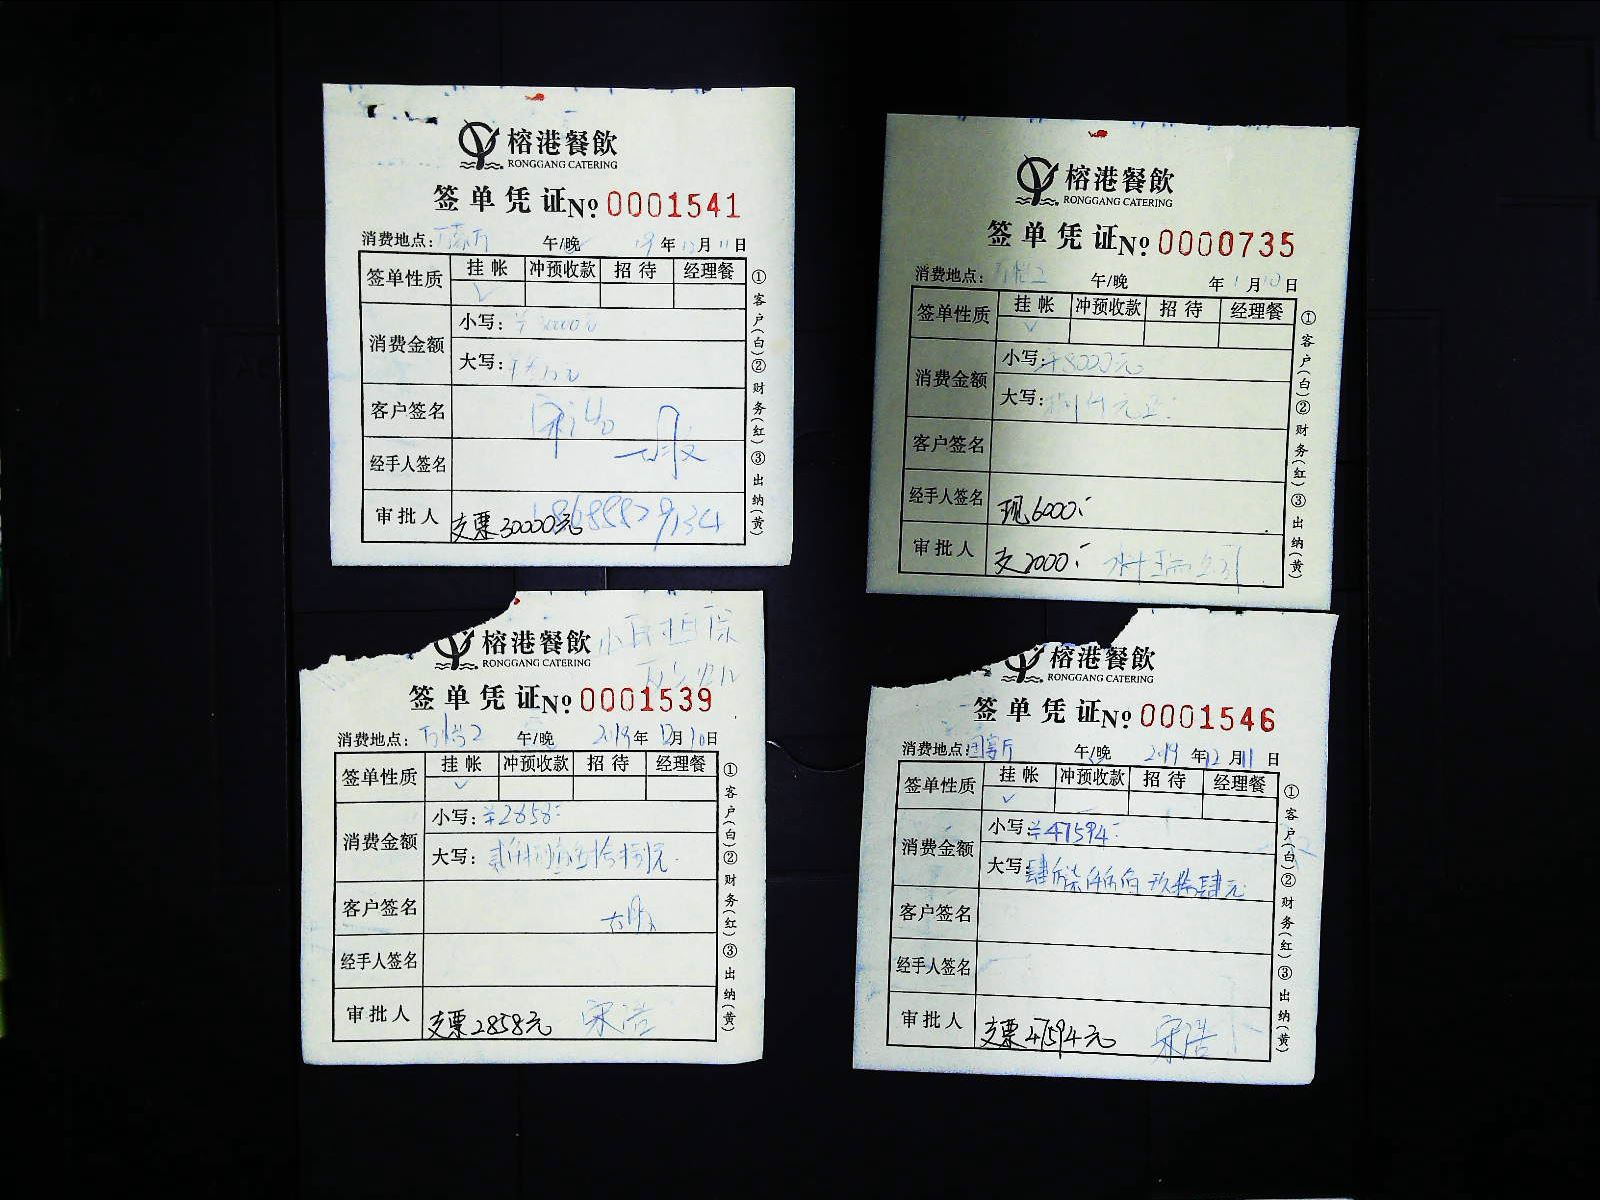 榕港餐飲
RONGGANG CATERING
签单凭证№ 0001541
消费地点: 午/晚 19年12月11日
签单性质 挂帐 冲预收款 招待 经理餐
✓
消费金额 小写: ¥30000元
大写:
客户签名
经手人签名
审批人 支票30000元
①客户(白)②财务(红)③出纳(黄)
榕港餐飲
RONGGANG CATERING
签单凭证№ 0000735
消费地点: 午/晚 年1月10日
签单性质 挂帐 冲预收款 招待 经理餐
✓
消费金额 小写: ¥8000元
大写: 捌仟元正
客户签名
经手人签名 现6000.-
审批人 支2000.-
①客户(白)②财务(红)③出纳(黄)
榕港餐飲
RONGGANG CATERING
签单凭证№ 0001539
消费地点: 午/晚 2019年12月10日
签单性质 挂帐 冲预收款 招待 经理餐
✓
消费金额 小写: ¥2858.-
大写: 贰仟捌佰伍拾捌元
客户签名
经手人签名
审批人 支票2858元 宋浩
①客户(白)②财务(红)③出纳(黄)
榕港餐飲
RONGGANG CATERING
签单凭证№ 0001546
消费地点: 国宴厅 午/晚 2019年12月11日
签单性质 挂帐 冲预收款 招待 经理餐
✓
消费金额 小写: ¥47594.-
大写: 肆万柒仟伍佰玖拾肆元
客户签名
经手人签名
审批人 支票47594元 宋浩
①客户(白)②财务(红)③出纳(黄)